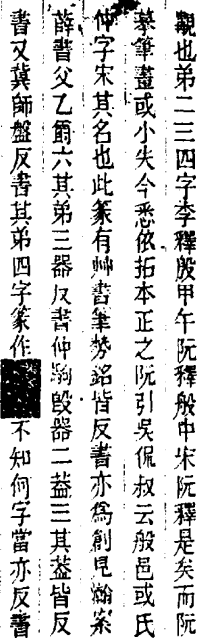 觀也弟二三四字李釋殷甲午阮釋般中宋阮釋是矣而阮
摹筆畫或小失今悉依拓本正之阮引吳侃叔云般邑或氏
仲字宋其名也此篆有艸書筆勢銘皆反書亦爲創見瀚案
薛書父乙爵六其弟三器反書仲駒𣪘器二葢三其葢皆反
書又冀師盤反書其弟四字篆作 不知何字當亦反書